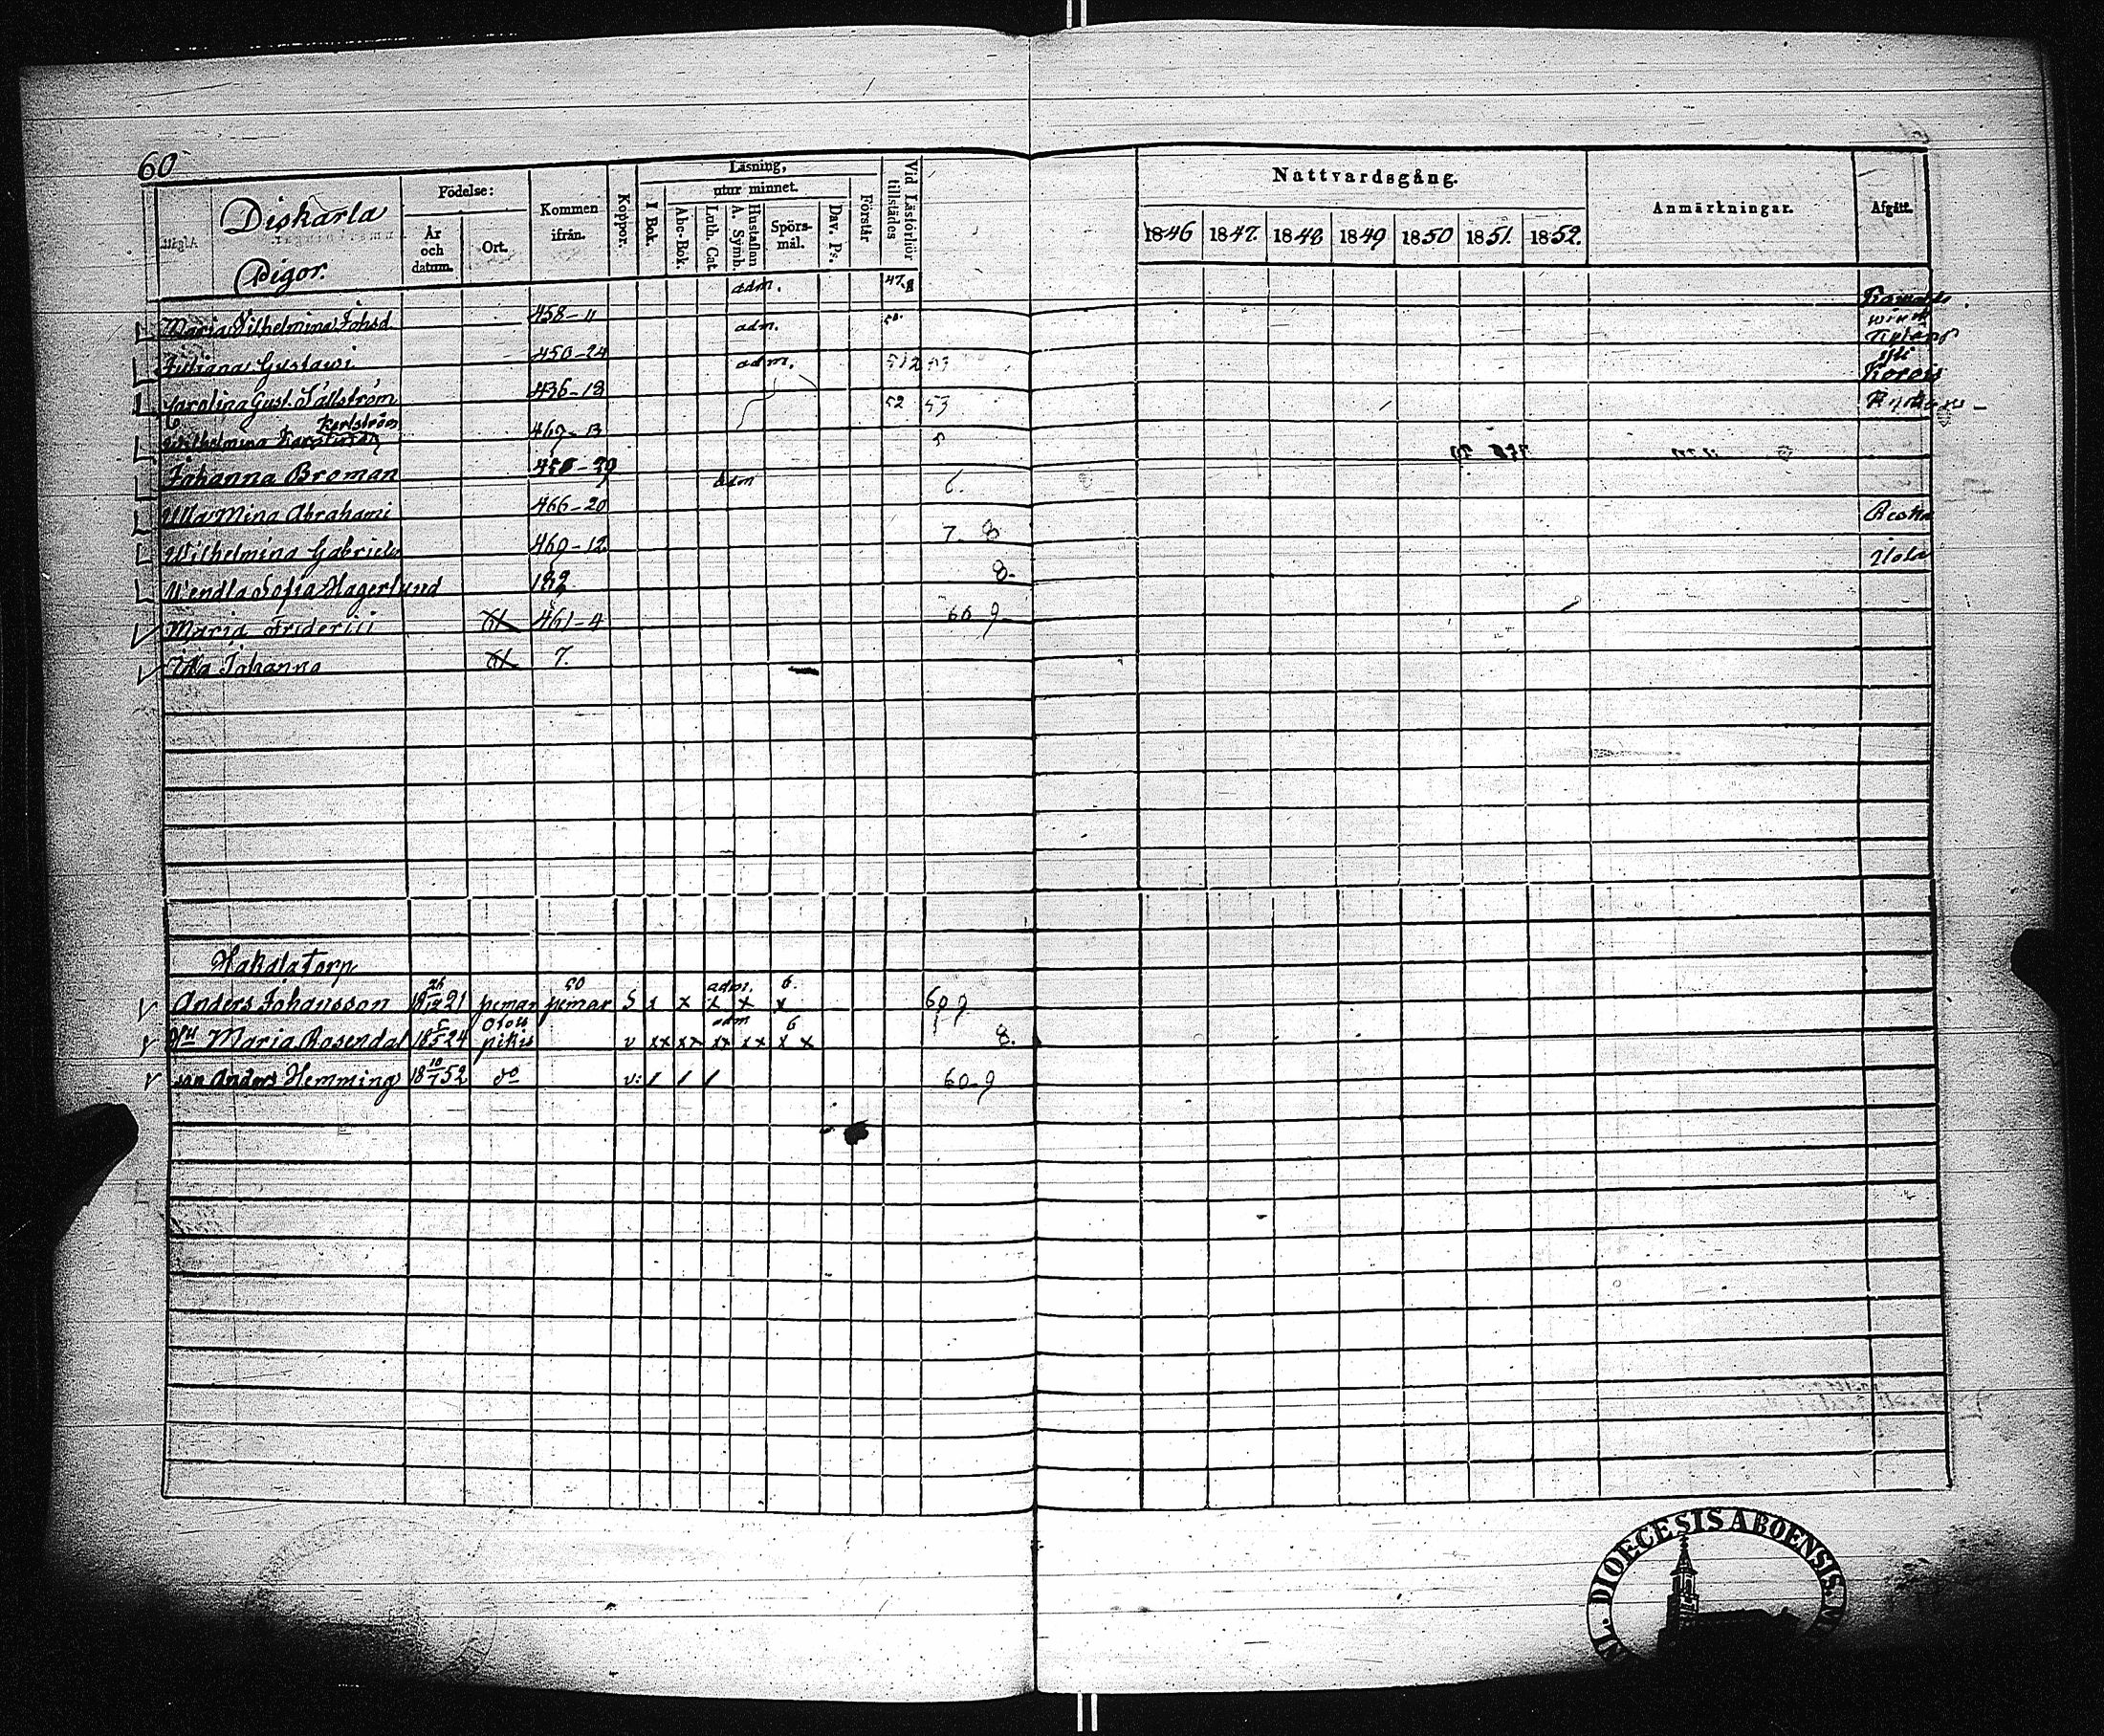 60
Diskarla
Pigor.
Födelse:
År och datum.
Ort.
Kommen ifrån.
Koppor.
Läsning,
I Bok.
utur minnet.
Abc-Bok.
Luth. Cat.
Hustaflan A. Symb.
Spörsmål.
Dav. Ps.
Förstår
Vid Läsförhör tillstädes
Nattvardsgång.
1846 1847. 1848 1849 1850 1851. 1852.
Anmärkningar.
Afgått.
adm. 47.8
Maria Vilhelmina Johsd. 458-11 adm. 50.
Juliana Gustavi 450-24 adm. 512 53
Carolina Gust. Sällström 436-18 52 53
Karlström
Wilhelmina 469-13
Johanna Broman adm 6.
Ulla Mina Abrahami 466-20
Wilhelmina Gabriels 469-12 7. 8
Wendla Sofia Hagerlund 182. 8.
Maria Frideriii 461-4 60 9
Ulla Johanna 7.
Hakala torp
Anders Johansson 18 26/12 21 pemar 50 pemar S x x adm. x x 6 x 60 9
Hu Maria Rosendal 18 5/5 24 pikis v xx xx adm xx xx 6 x x 8.
son Anders Hemming 18 10/7 52 do v: / / / 60-9
DIOECESIS ABOENSIS.